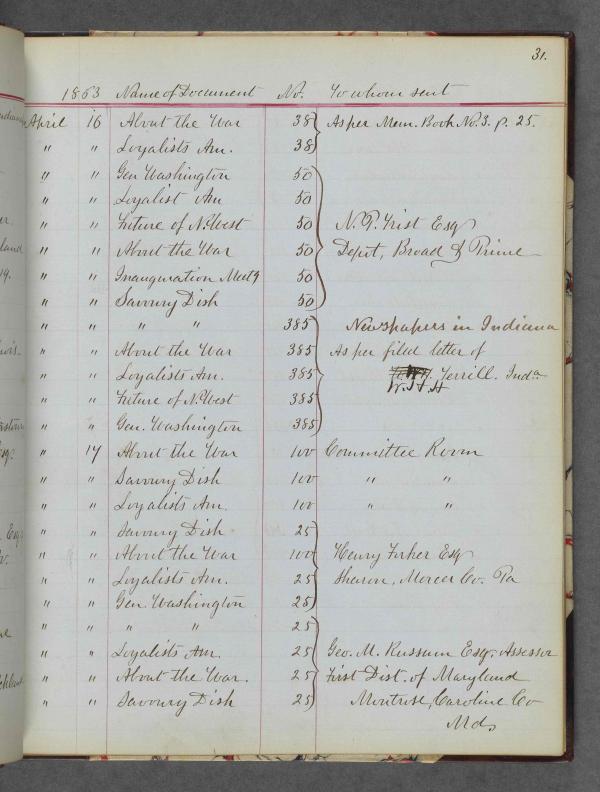 31.
1863 Name of Document No. To whom sent
April 16 About the War 38 As per Mem. Book No. 3. p. 25.
" " Loyalists Am. 38
" " Gen Washington 50
" " Loyalist Am 50
" " Future of N.West 50 N. P. Trist Esq
" " About the War 50 Depot, Broad & Prime
" " Inauguration Meetg 50
" " Savoury Dish 50
" " " " 385 Newspapers in Indiana
" " About the War 385 As per filed letter of
" " Loyalists Am. 385 W. H. H. Terrill. Inda
" " Future of N.West 385
" " Gen. Washington 385
" 17 About the War 100 Committee Room
" " Savoury Dish 100 " "
" " Loyalists Am. 100 " "
" " Savoury Dish 25
" " About the War 100 Henry Forker Esq
" " Loyalists Am. 25 Sharon, Mercer Co. Pa
" " Gen. Washington 25
" " " " 25
" " Loyalists Am. 25 Geo. M. Russum Esq. Assessor
" " About the War. 25 First Dist. of Maryland
" " Savoury Dish 25 Montrose, Caroline Co
Md,